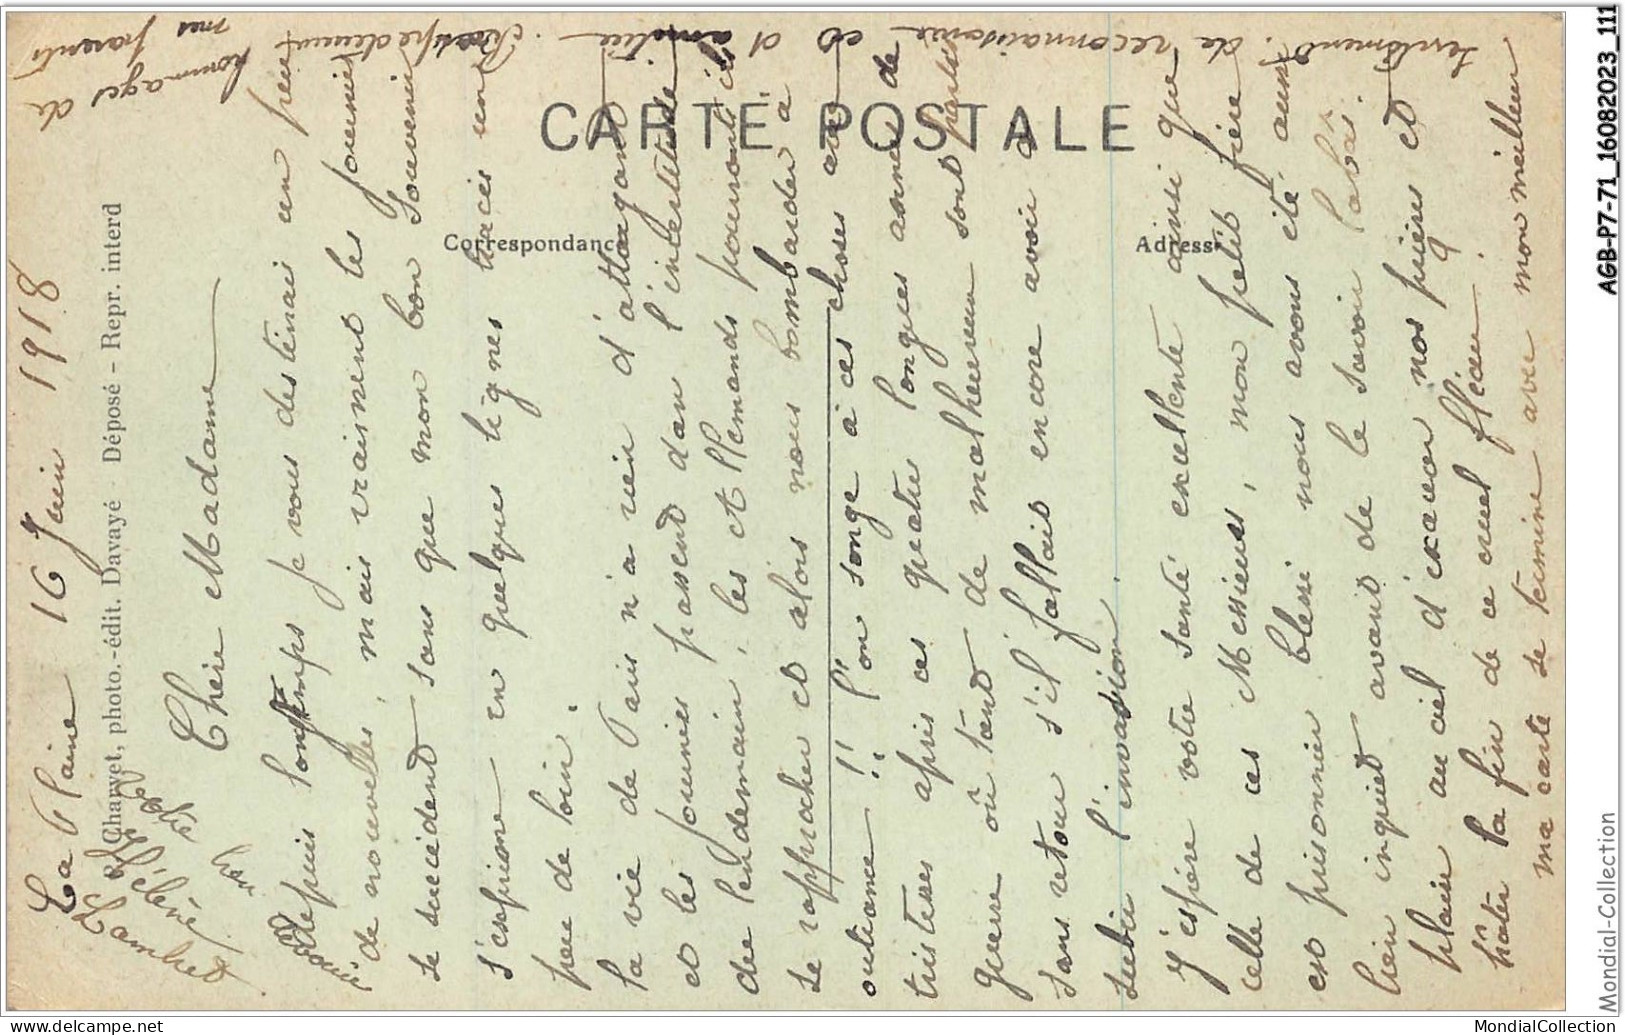 La Plaine 16 Juin 1918
Chère Madame
Depuis longtemps je vous destinais un peu
de nouvelles, mais vraiment les journées
se succèdent sans que mon bon souvenir
s'exprime en quelques lignes tracées un
peu de loin.
La vie de Paris n'a rien d'attrayant
et les journées passent dans l'incertitude
du lendemain, les Allemands pourront-ils
se rapprocher et alors nous bombarder à
outrance !! l'on songe à ces choses avec
tristesses après ces quatre longues années de
guerre où tant de malheureux sont partis
sans retour s'il fallait encore avoir à
subir l'invasion.
J'espère votre santé excellente ainsi que
celle de ces Messieurs, mon petit frère
est prisonnier blessé nous avons été aussi
bien inquiet avant de le savoir là bas.
plaise au ciel d'exaucer nos prières et
hâter la fin de ce cruel fléau.
ma carte se termine avec mon meilleur
sentiment de reconnaissance et d'amitié.
Respectueux hommages de
mes parents
Votre bien
Hélène
Lambert
CARTE POSTALE
Correspondance
Adresse
B. Charvet, photo.-édit. Davayé - Déposé - Repr. interd
AGB-P7-71_16082023_111
Mondial-Collection
https://www.delcampe.net
MondialCollection